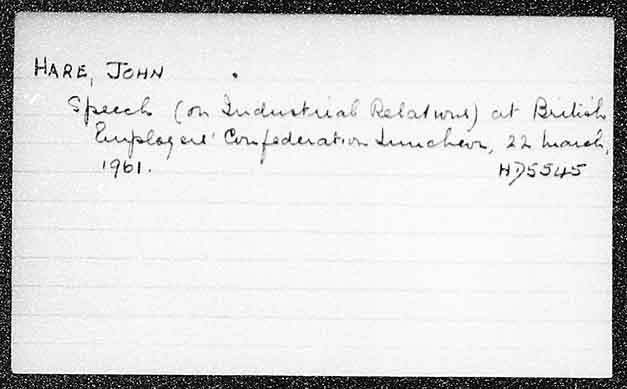 HARE, JOHN
Speech (on Industrial Relations) at British
Employers' Confederation Luncheon, 22 March,
1961. HD5545